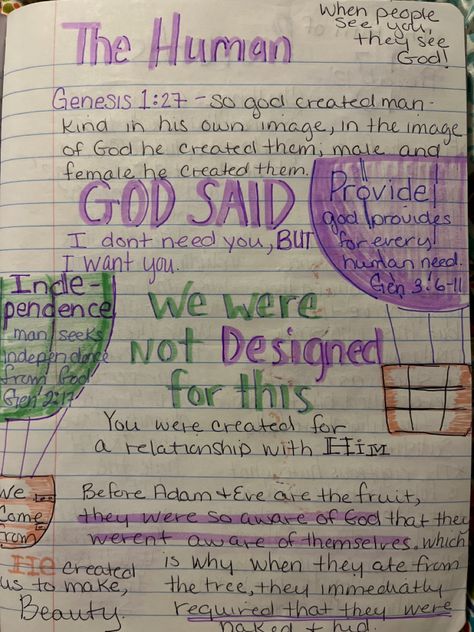 The Human
when people
see you,
they see
God!
Genesis 1:27 - so god created man-
kind in his own image, in the image
of God he created them; male and
female he created them.
GOD SAID
I dont need you, BUT
I want you.
Provide
god provides
for every
human need.
Gen 3:6-11
Inde-
pendence
man seeks
independence
from God
Gen 2:17
We were
not Designed
for this
You were created for
a relationship with HIM
We
Come
from
He created
us to make,
Beauty.
Before Adam + Eve are the fruit,
they were so aware of God that they
werent aware of themselves. which
is why when they ate from
the tree, they immediatly
required that they were
naked + hid.